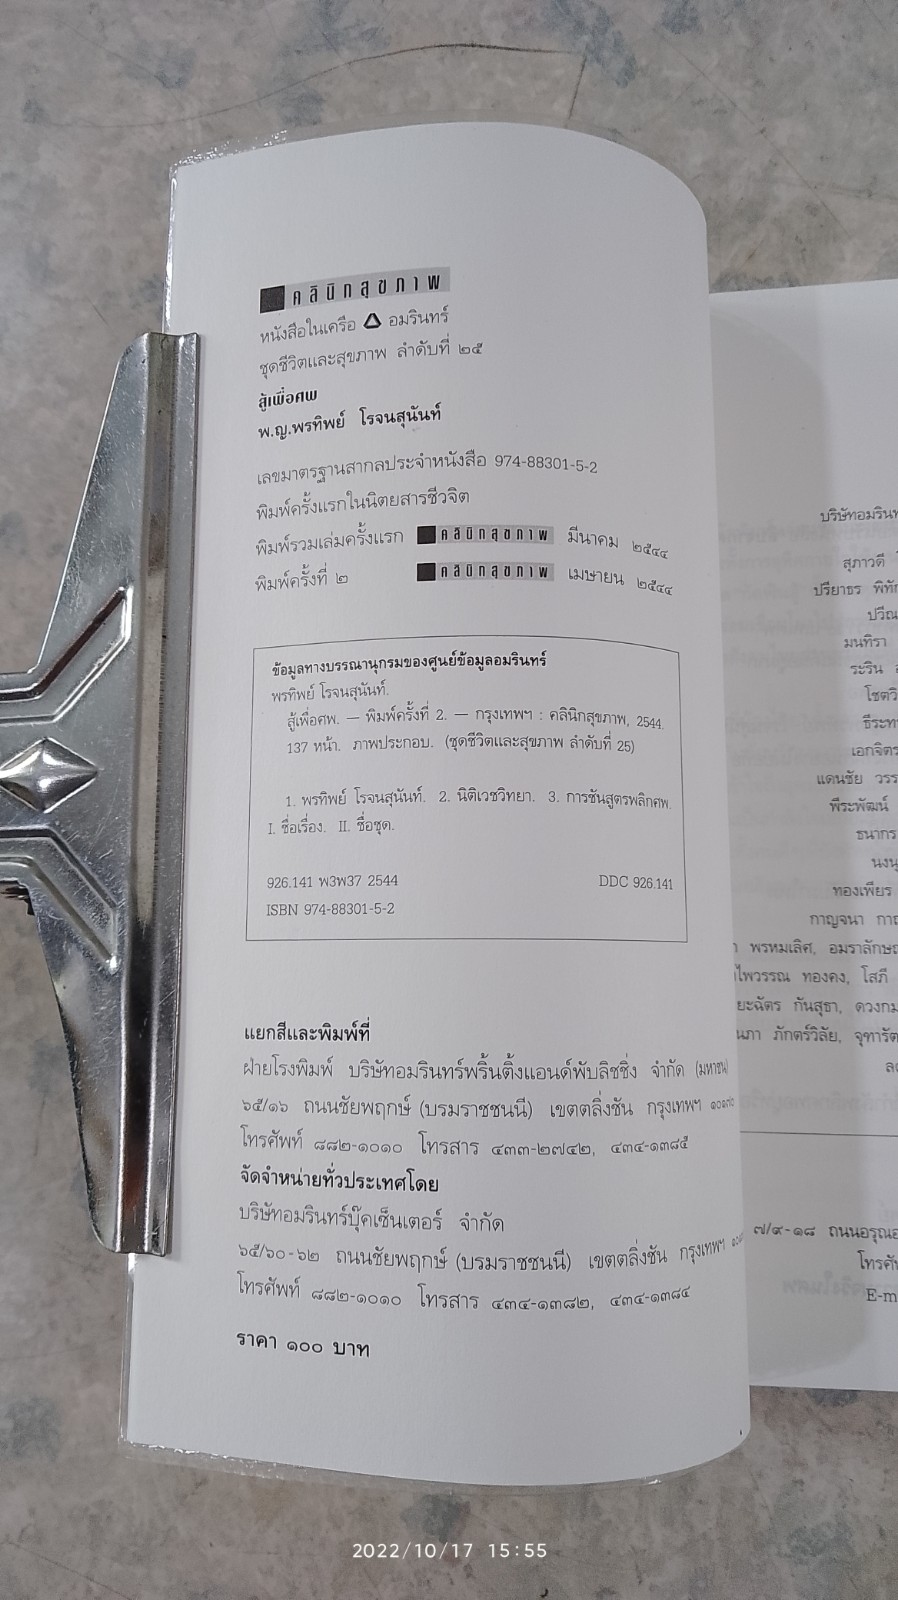 คลินิกสุขภาพ
หนังสือในเครือ อมรินทร์
ชุดชีวิตและสุขภาพ ลำดับที่ ๒๕
สู้เพื่อศพ
พ.ญ.พรทิพย์ โรจนสุนันท์
เลขมาตรฐานสากลประจำหนังสือ 974-88301-5-2
พิมพ์ครั้งแรกในนิตยสารชีวจิต
พิมพ์รวมเล่มครั้งแรก คลินิกสุขภาพ มีนาคม ๒๕๔๔
พิมพ์ครั้งที่ ๒ คลินิกสุขภาพ เมษายน ๒๕๔๔
ข้อมูลทางบรรณานุกรมของศูนย์ข้อมูลอมรินทร์
พรทิพย์ โรจนสุนันท์.
สู้เพื่อศพ. — พิมพ์ครั้งที่ 2. — กรุงเทพฯ : คลินิกสุขภาพ, 2544.
137 หน้า. ภาพประกอบ. (ชุดชีวิตและสุขภาพ ลำดับที่ 25)
1. พรทิพย์ โรจนสุนันท์. 2. นิติเวชวิทยา. 3. การชันสูตรพลิกศพ.
I. ชื่อเรื่อง. II. ชื่อชุด.
926.141 พ3พ37 2544 DDC 926.141
ISBN 974-88301-5-2
แยกสีและพิมพ์ที่
ฝ่ายโรงพิมพ์ บริษัทอมรินทร์พริ้นติ้งแอนด์พับลิชชิ่ง จำกัด (มหาชน)
๖๕/๑๖ ถนนชัยพฤกษ์ (บรมราชชนนี) เขตตลิ่งชัน กรุงเทพฯ ๑๐๑๗๐
โทรศัพท์ ๘๘๒-๑๐๑๐ โทรสาร ๔๓๓-๒๗๔๒, ๔๓๔-๑๓๘๕
จัดจำหน่ายทั่วประเทศโดย
บริษัทอมรินทร์บุ๊คเซ็นเตอร์ จำกัด
๖๕/๖๐-๖๒ ถนนชัยพฤกษ์ (บรมราชชนนี) เขตตลิ่งชัน กรุงเทพฯ
โทรศัพท์ ๘๘๒-๑๐๑๐ โทรสาร ๔๓๔-๑๓๘๒, ๔๓๔-๑๓๘๔
ราคา ๑๐๐ บาท
บริษัทอมรินท
สุภาวดี
ปรียาธร พิทัก
ปวีณ
มนทิรา
ระริน
โชตวิ
ธีระท
เอกจิตร
แดนชัย วรร
พีระพัฒน์
ธนากร
นงนุ
ทองเพียร
กาญจนา กาญ
พรหมเลิศ, อมราลักษณ
ไพวรรณ ทองคง, โสภี
ยะฉัตร กันสุธา, ดวงกม
นภา ภักตร์วิลัย, จุฑารัต
๗/๙-๑๘ ถนนอรุณอ
โทรศั
E-m
2022/10/17 15:55